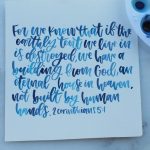 For we know that if the
earthly tent we live in
is destroyed, we have a
building from God, an
eternal house in heaven,
not built by human
hands. 2 corinthians 5:1